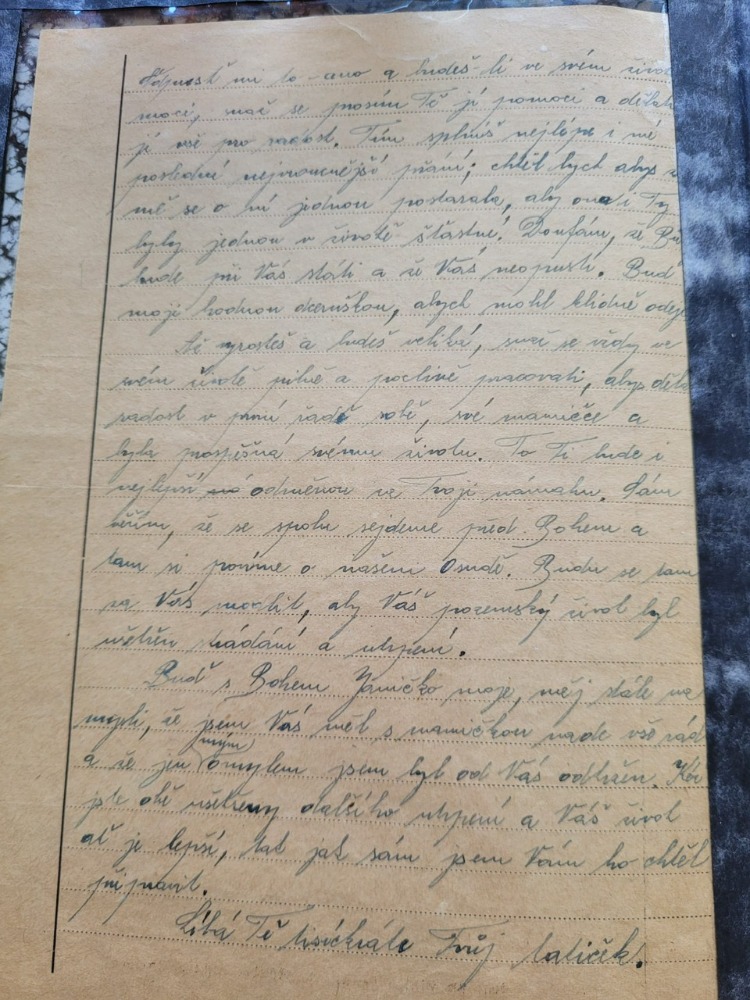 Odpusť mi to - ano a budeš-li ve svém život
moci, snaž se prosím Tě jí pomoci a dělat
jí vše pro radost. Tím splníš nejlépe i mé
poslední nejvroucnější přání; chtěl bych abys
mě se o ní jednou postarala, aby ona i Ty
byly jednou v životě šťastné! Doufám, že Bů
bude při Vás státi a že Vás neopustí. Buď
mojí hodnou dceruškou, abych mohl klidně odej
Až vyrosteš a budeš veliká, snaž se vždy ve
svém životě pilně a poctivě pracovati, abys děla
radost v první řadě sobě, své mamičce a
byla prospěšná svému životu. To Ti bude i
nejlepší odměnou za Tvoji námahu. Sám
věřím, že se spolu sejdeme před Bohem a
tam si povíme o našem Osudě. Budu se tam
za Vás modlit, aby Váš pozemský život byl
ušetřen strádání a utrpení.
Buď s Bohem Janičko moje, měj stále na
mysli, že jsem Vás měl s mamičkou nade vše rád
a že jen mým omylem jsem byl od Vás odtržen. Kéž
jste obě ušetřeny dalšího utrpení a Váš život
ať je lepší, tak jak sám jsem Vám ho chtěl
připravit.
Líbá Tě tisíckráte Tvůj tatíček.